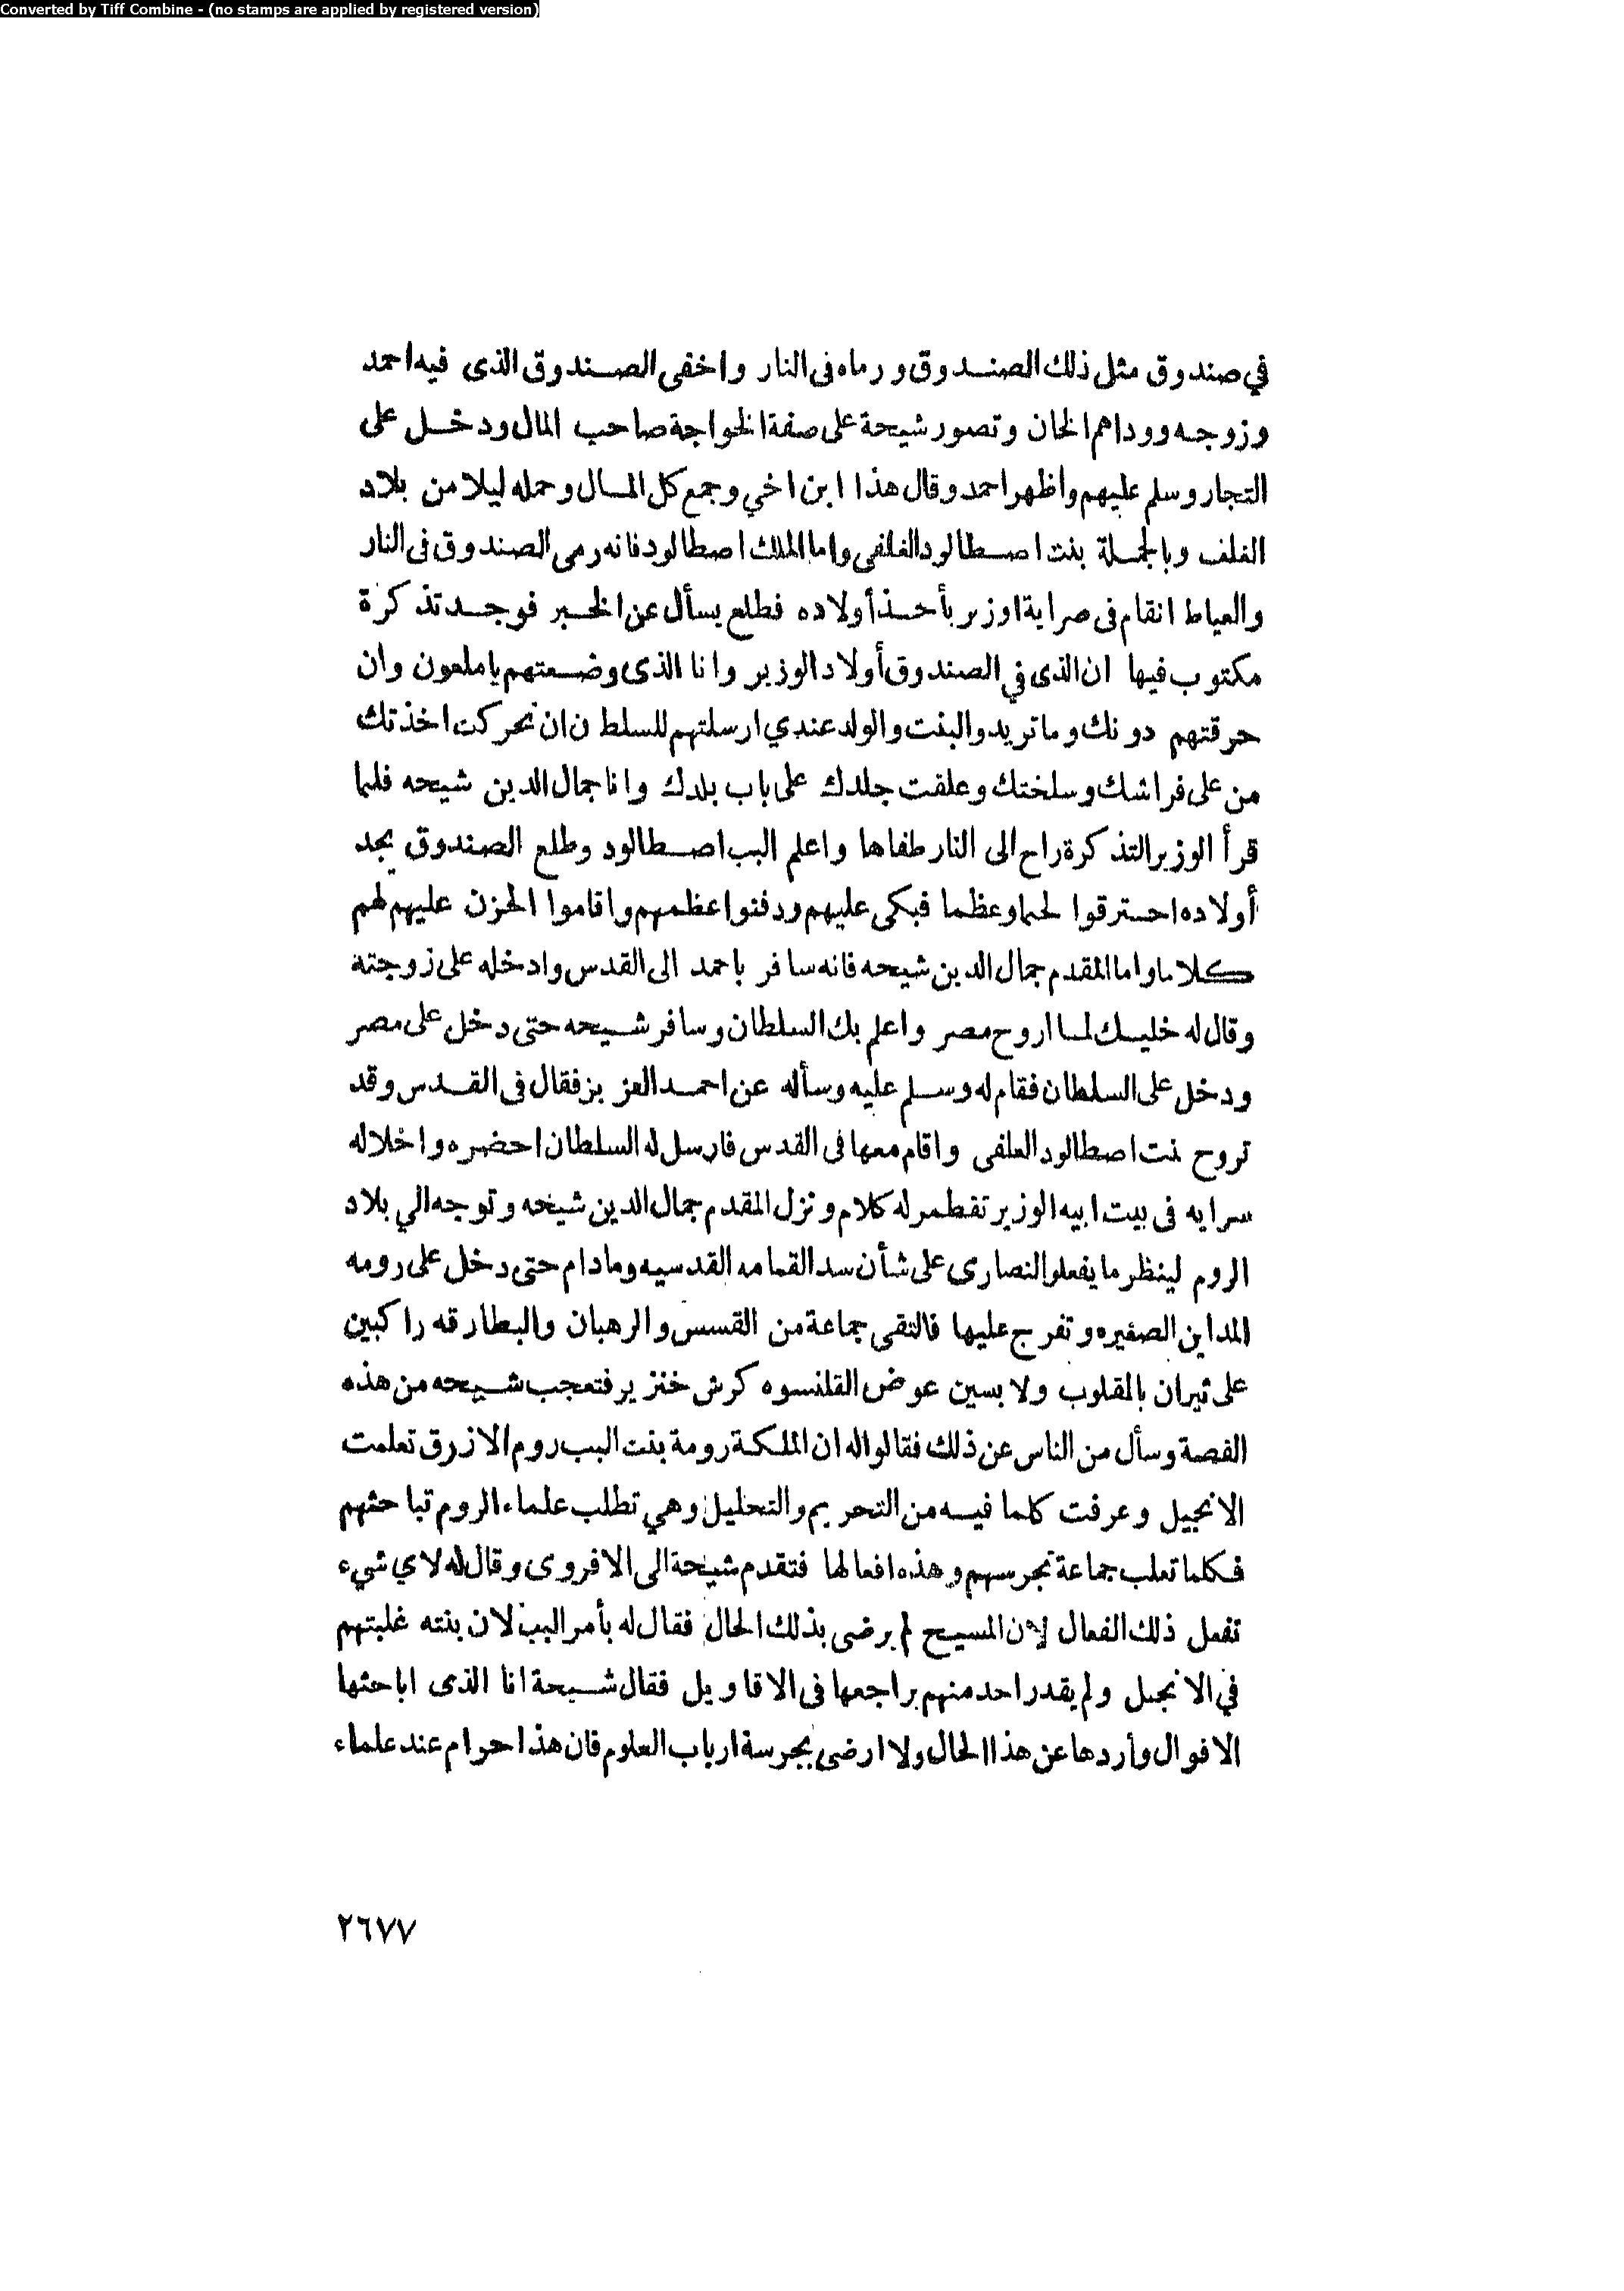 Converted by Tiff Combine - (no stamps are applied by registered version)
في صندوق مثل ذلك الصندوق ورماه فى النار واخفى الصندوق الذى فيه احمد
وزوجه ووداهم الخان وتصور شيحة على صفة الخواجة صاحب المال ودخل على
التجار وسلم عليهم وأظهر احمد وقال هذا ابن اخي وجمع كل المال وحمله ليلا من بلاد
الفلف وبالجملة بنت اصطالود الفلفى واما الملك اصطالود فانه رمى الصندوق فى النار
والعياط انقام فى صراية اوزير بأخذ أولاده فطلع يسأل عن الخبر فوجد تذكرة
مكتوب فيها ان الذى في الصندوق أولاد الوزير وانا الذى وضعتهم ياملعون وان
حرقتهم دونك وما تريد والبنت والولد عندي ارسلتهم للسلط ن ان تحركت اخذتك
من على فراشك وسلختك وعلقت جلدك على باب بلدك وانا جمال الدين شيحه فلما
قرأ الوزير التذكرة راح الى النار طفاها واعلم البب اصطالود وطلع الصندوق يجد
أولاده احترقوا لحما وعظما فبكى عليهم ودفنوا عظمهم واقاموا الحزن عليهم لهم
كلاما واما المقدم جمال الدين شيحه فانه سافر باحمد الى القدس وادخله على زوجته
وقال له خليك لما اروح مصر واعلم بك السلطان وسافر شيحه حتى دخل على مصر
ودخل على السلطان فقام له وسلم عليه وسأله عن احمد العزبز فقال فى القدس وقد
تروح بنت اصطالود العلفى واقام معها فى القدس فارسل له السلطان احضره واخلاله
سرايه فى بيت ابيه الوزير تقطمر له كلام ونزل المقدم جمال الدين شيخه وتوجه الي بلاد
الروم لينظر ما يفعلوا النصارى على شأن سد القمامه القدسيه ومادام حتى دخل على رومه
المداين الصغيره وتفرج عليها فالتقى جماعة من القسس والرهبان والبطارقه راكبين
على ثيران بالمقلوب ولابسين عوض القلنسوه كرش خنزير فتعجب شيحه من هذه
القصة وسأل من الناس عن ذلك فقالوا له ان الملكة رومة بنت البب روم الازرق تعلمت
الانجيل وعرفت كلما فيه من التحريم والتحليل وهي تطلب علماء الروم تباحثهم
فكلما تعلب جماعة تجرسهم وهذه افعالها فتقدم شيحة الى الافروى وقال له لاي شيء
تفعل ذلك الفعال لان المسيح لم يرضى بذلك الحال فقال له بأمر البب لان بنته غلبتهم
في الانجيل ولم يقدر احد منهم يراجعها فى الاقاويل فقال شيحة انا الذى اباحثها
الاقوال وأردها عن هذا الحال ولا ارضى بجرسة ارباب العلوم فان هذا حرام عند علماء
٢٦٧٧